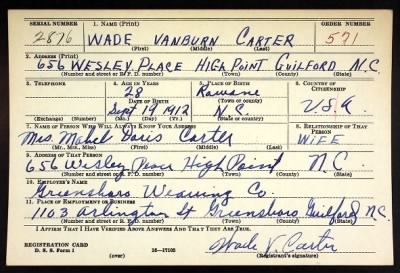 SERIAL NUMBER 1. NAME (Print) ORDER NUMBER
2876 WADE VANBURN CARTER 571
(First) (Middle) (Last)
2. ADDRESS (Print)
656 WESLEY PLACE HIGH POINT GUILFORD N.C.
(Number and street or R. F. D. number) (Town) (County) (State)
3. TELEPHONE 4. AGE IN YEARS 5. PLACE OF BIRTH 6. COUNTRY OF CITIZENSHIP
28 Rowane
DATE OF BIRTH (Town or county)
Sept 19 1912 N.C. U.S.A.
(Exchange) (Number) (Mo.) (Day) (Yr.) (State or country)
7. NAME OF PERSON WHO WILL ALWAYS KNOW YOUR ADDRESS 8. RELATIONSHIP OF THAT PERSON
Mrs. Mabel Carter WIFE
(Mr., Mrs., Miss) (First) (Middle) (Last)
9. ADDRESS OF THAT PERSON
656 Wesley Place High Point N C
(Number and street or R. F. D. number) (Town) (County) (State)
10. EMPLOYER'S NAME
Greensboro Weaving Co.
11. PLACE OF EMPLOYMENT OR BUSINESS
1103 Arlington St Greensboro Guilford N.C.
(Number and street or R. F. D. number) (Town) (County) (State)
I AFFIRM THAT I HAVE VERIFIED ABOVE ANSWERS AND THAT THEY ARE TRUE.
REGISTRATION CARD
D. S. S. Form 1 (over) 16—17105 Wade V. Carter
(Registrant's signature)